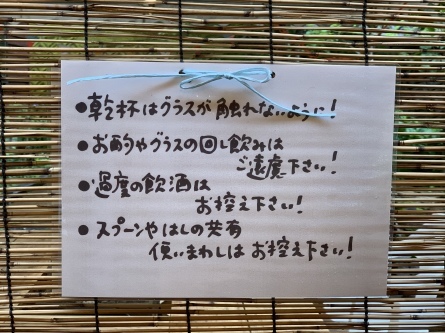 ●乾杯はグラスが触れないように!
●お酌やグラスの回し飲みは
ご遠慮下さい!
●過度の飲酒は
お控え下さい!
●スプーンやはしの共有
使いまわしはお控え下さい!